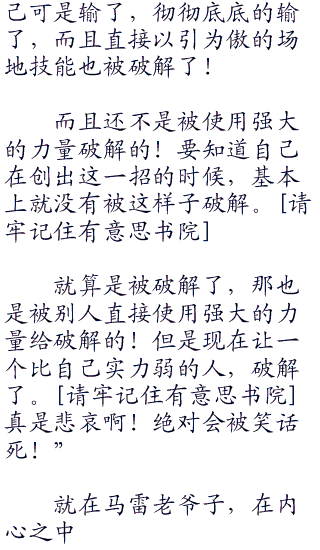 己可是输了，彻彻底底的输
了，而且直接以引为傲的场
地技能也被破解了！
而且还不是被使用强大
的力量破解的！要知道自己
在创出这一招的时候，基本
上就没有被这样子破解。[请
牢记住有意思书院]
就算是被破解了，那也
是被别人直接使用强大的力
量给破解的！但是现在让一
个比自己实力弱的人，破解
了。[请牢记住有意思书院]
真是悲哀啊！绝对会被笑话
死！”
就在马雷老爷子，在内
心之中